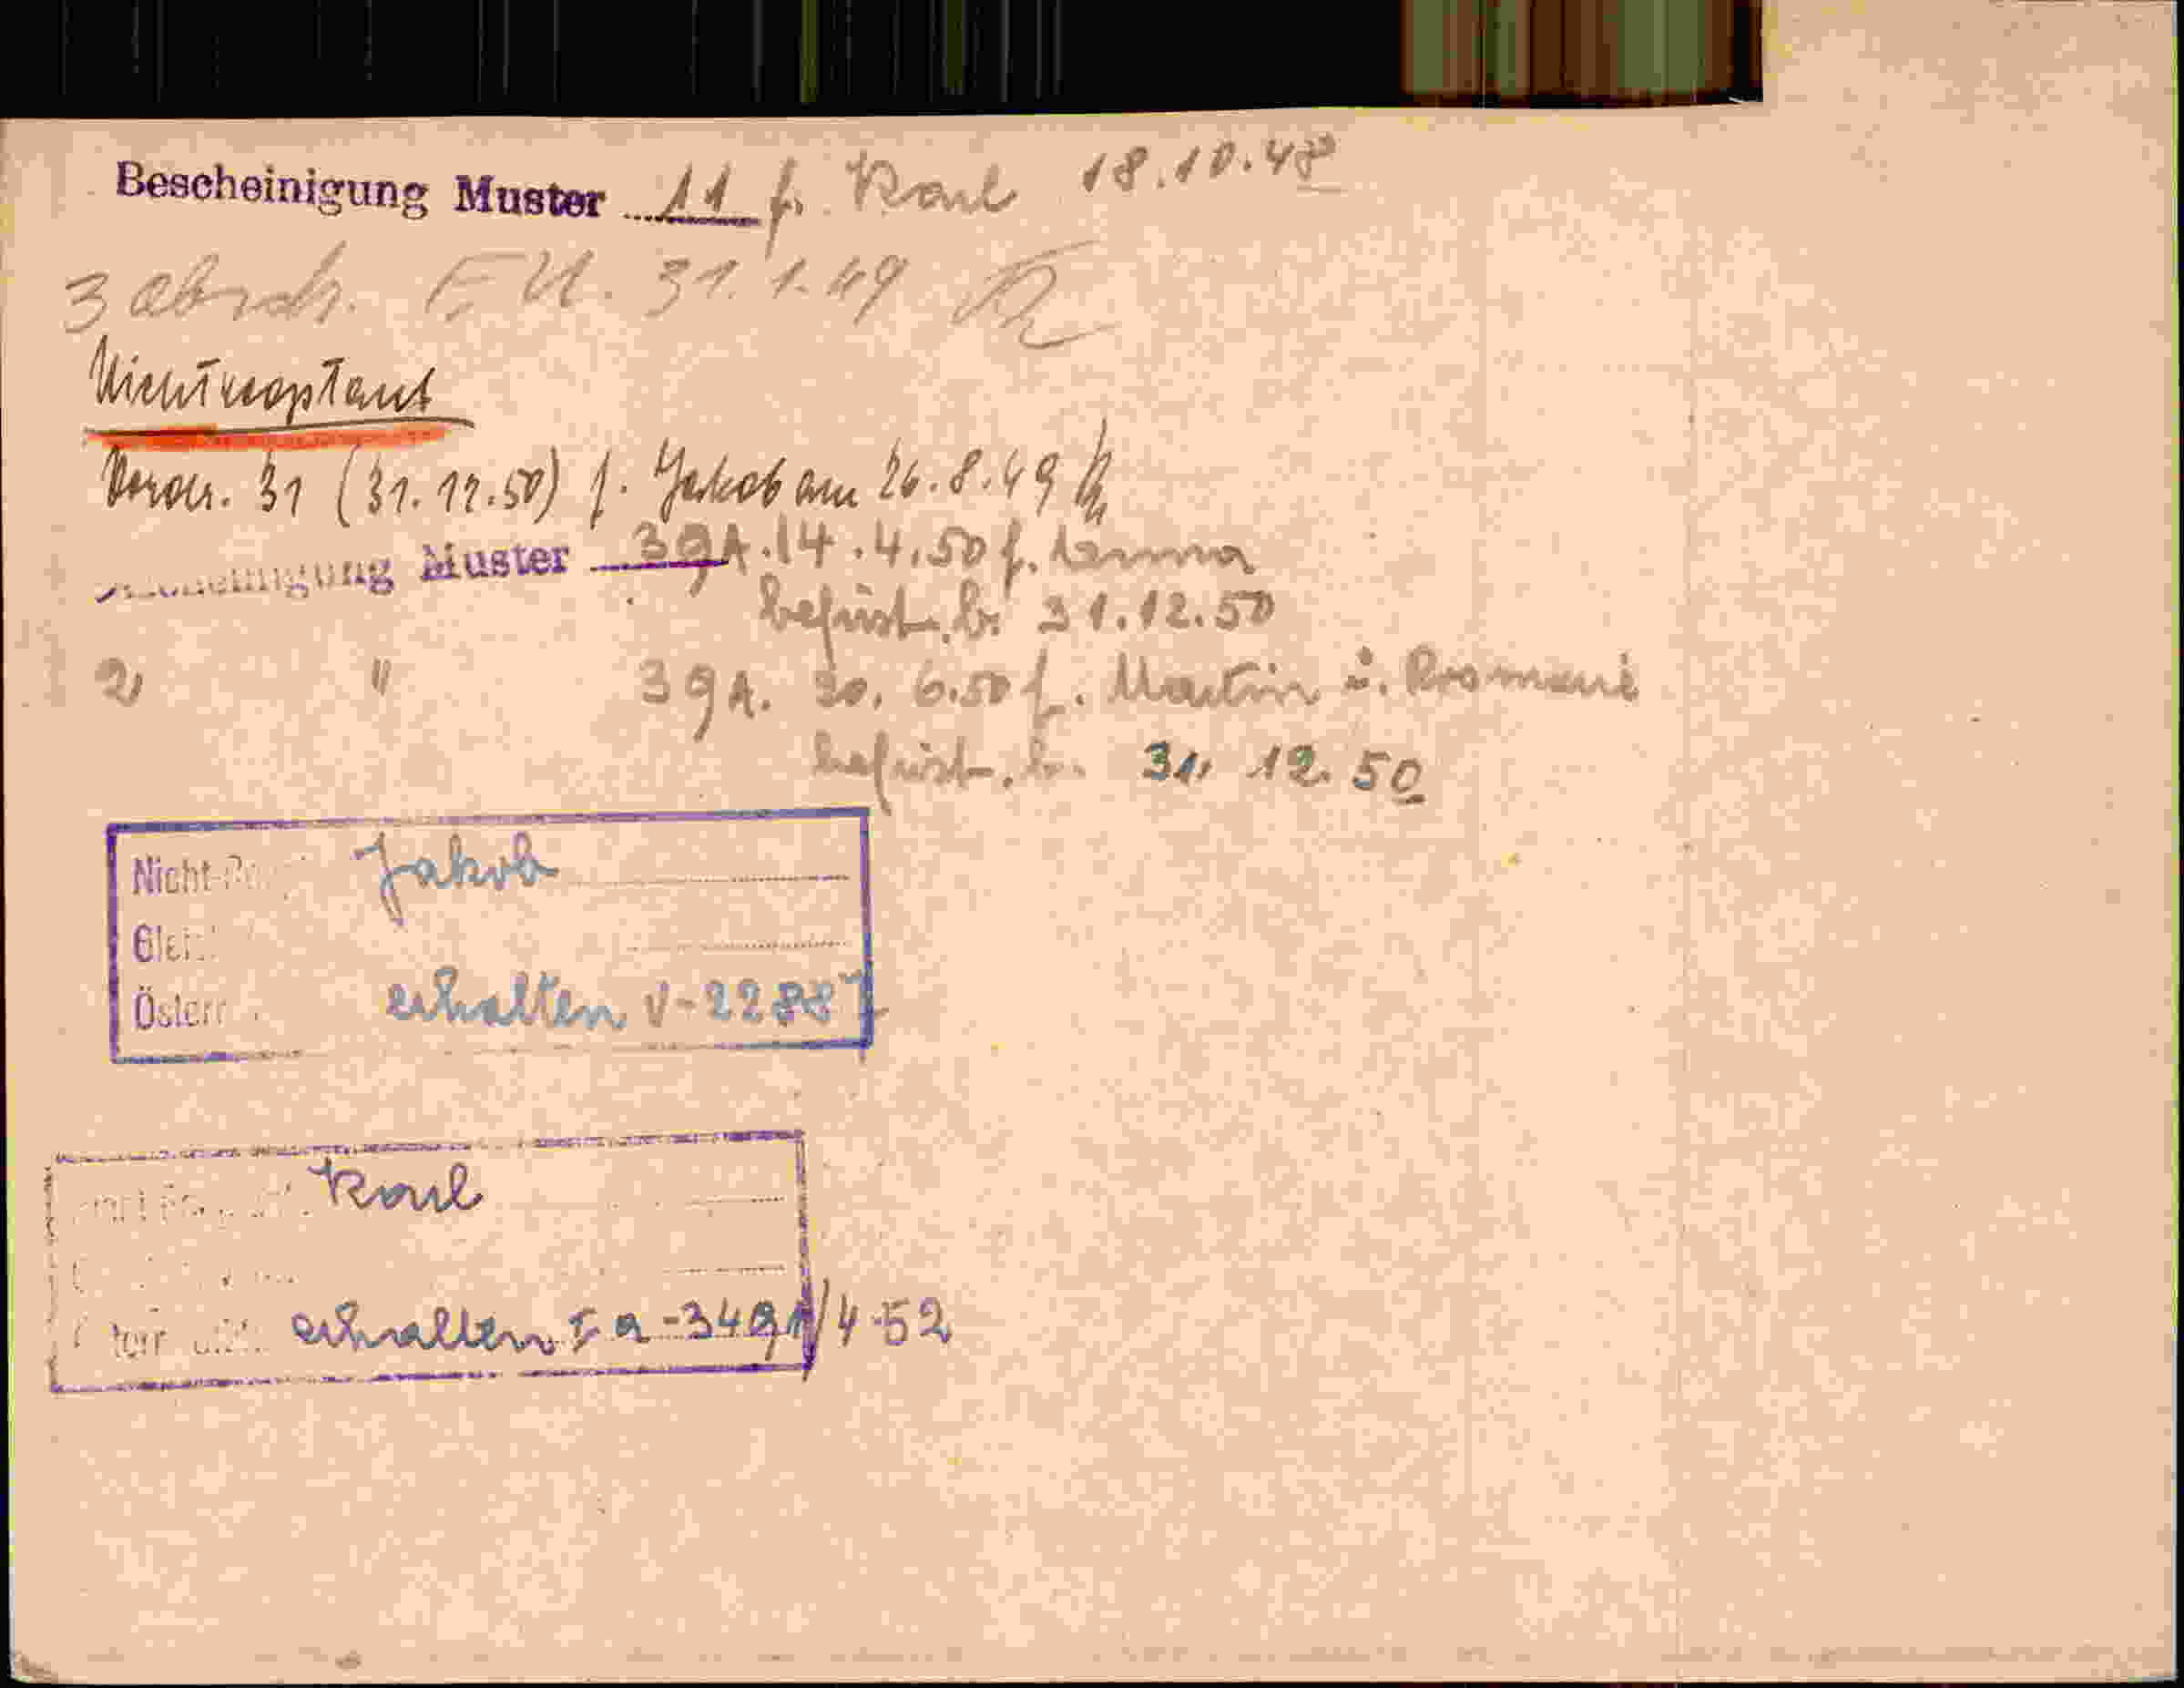 Bescheinigung Muster 11 f. Karl 18.10.48
3 Abschr. E U. 31.1.49
Nichtreoptant
Vordr. 31 (31.12.50) f. Jakob am 26.8.49
Muster 39A. 14.4.50 f. Anna
befrist. b. 31.12.50
2 " 39A. 30.6.50 f. Martin u. Rosmarie
befrist. b. 31.12.50
Nicht Jakob
Österr erhalten V-22887
Karl
erhalten I a-3491/4-52